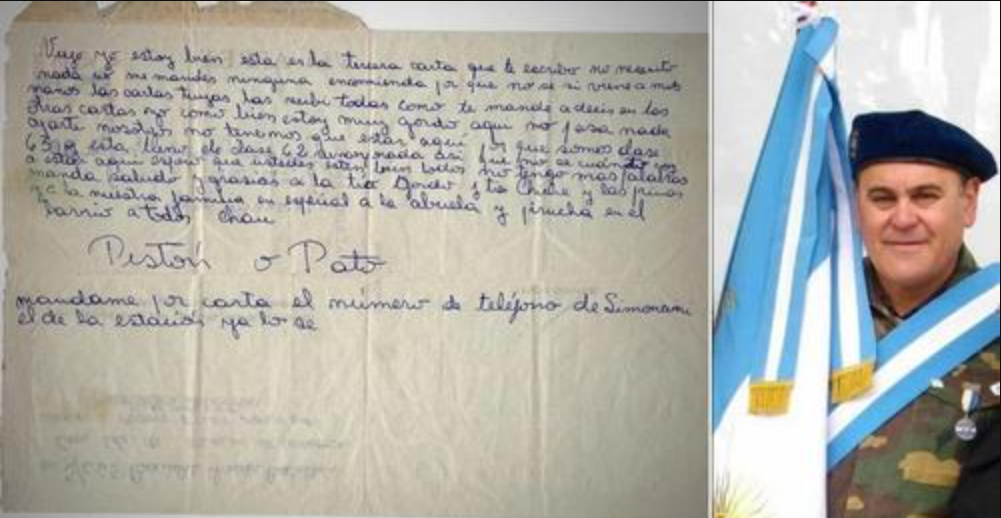 Viejo yo estoy bien esta es la tercera carta que te escribo no necesito
nada no me mandes ninguna encomienda por que no se si viene a mis
manos las cartas tuyas las recibi todas como te mande a decir en las
otras cartas yo como bien estoy muy gordo aqui no pasa nada
aparte nosotros no tenemos que estar aqui por que somos clase
63 y esta lleno de clase 62 asi que no se cuando
a estar aqui espero que ustedes esten bien todos no tengo mas palabras
manda saludo y grasias a la tia Gorda y tia Chene y las primas
y a la nuestra familia en especial a la abuela y pirucha en el
barrio a todos chau
Pistón o Pato
mandame por carta el número de teléfono de Simonami
el de la estación ya lo se